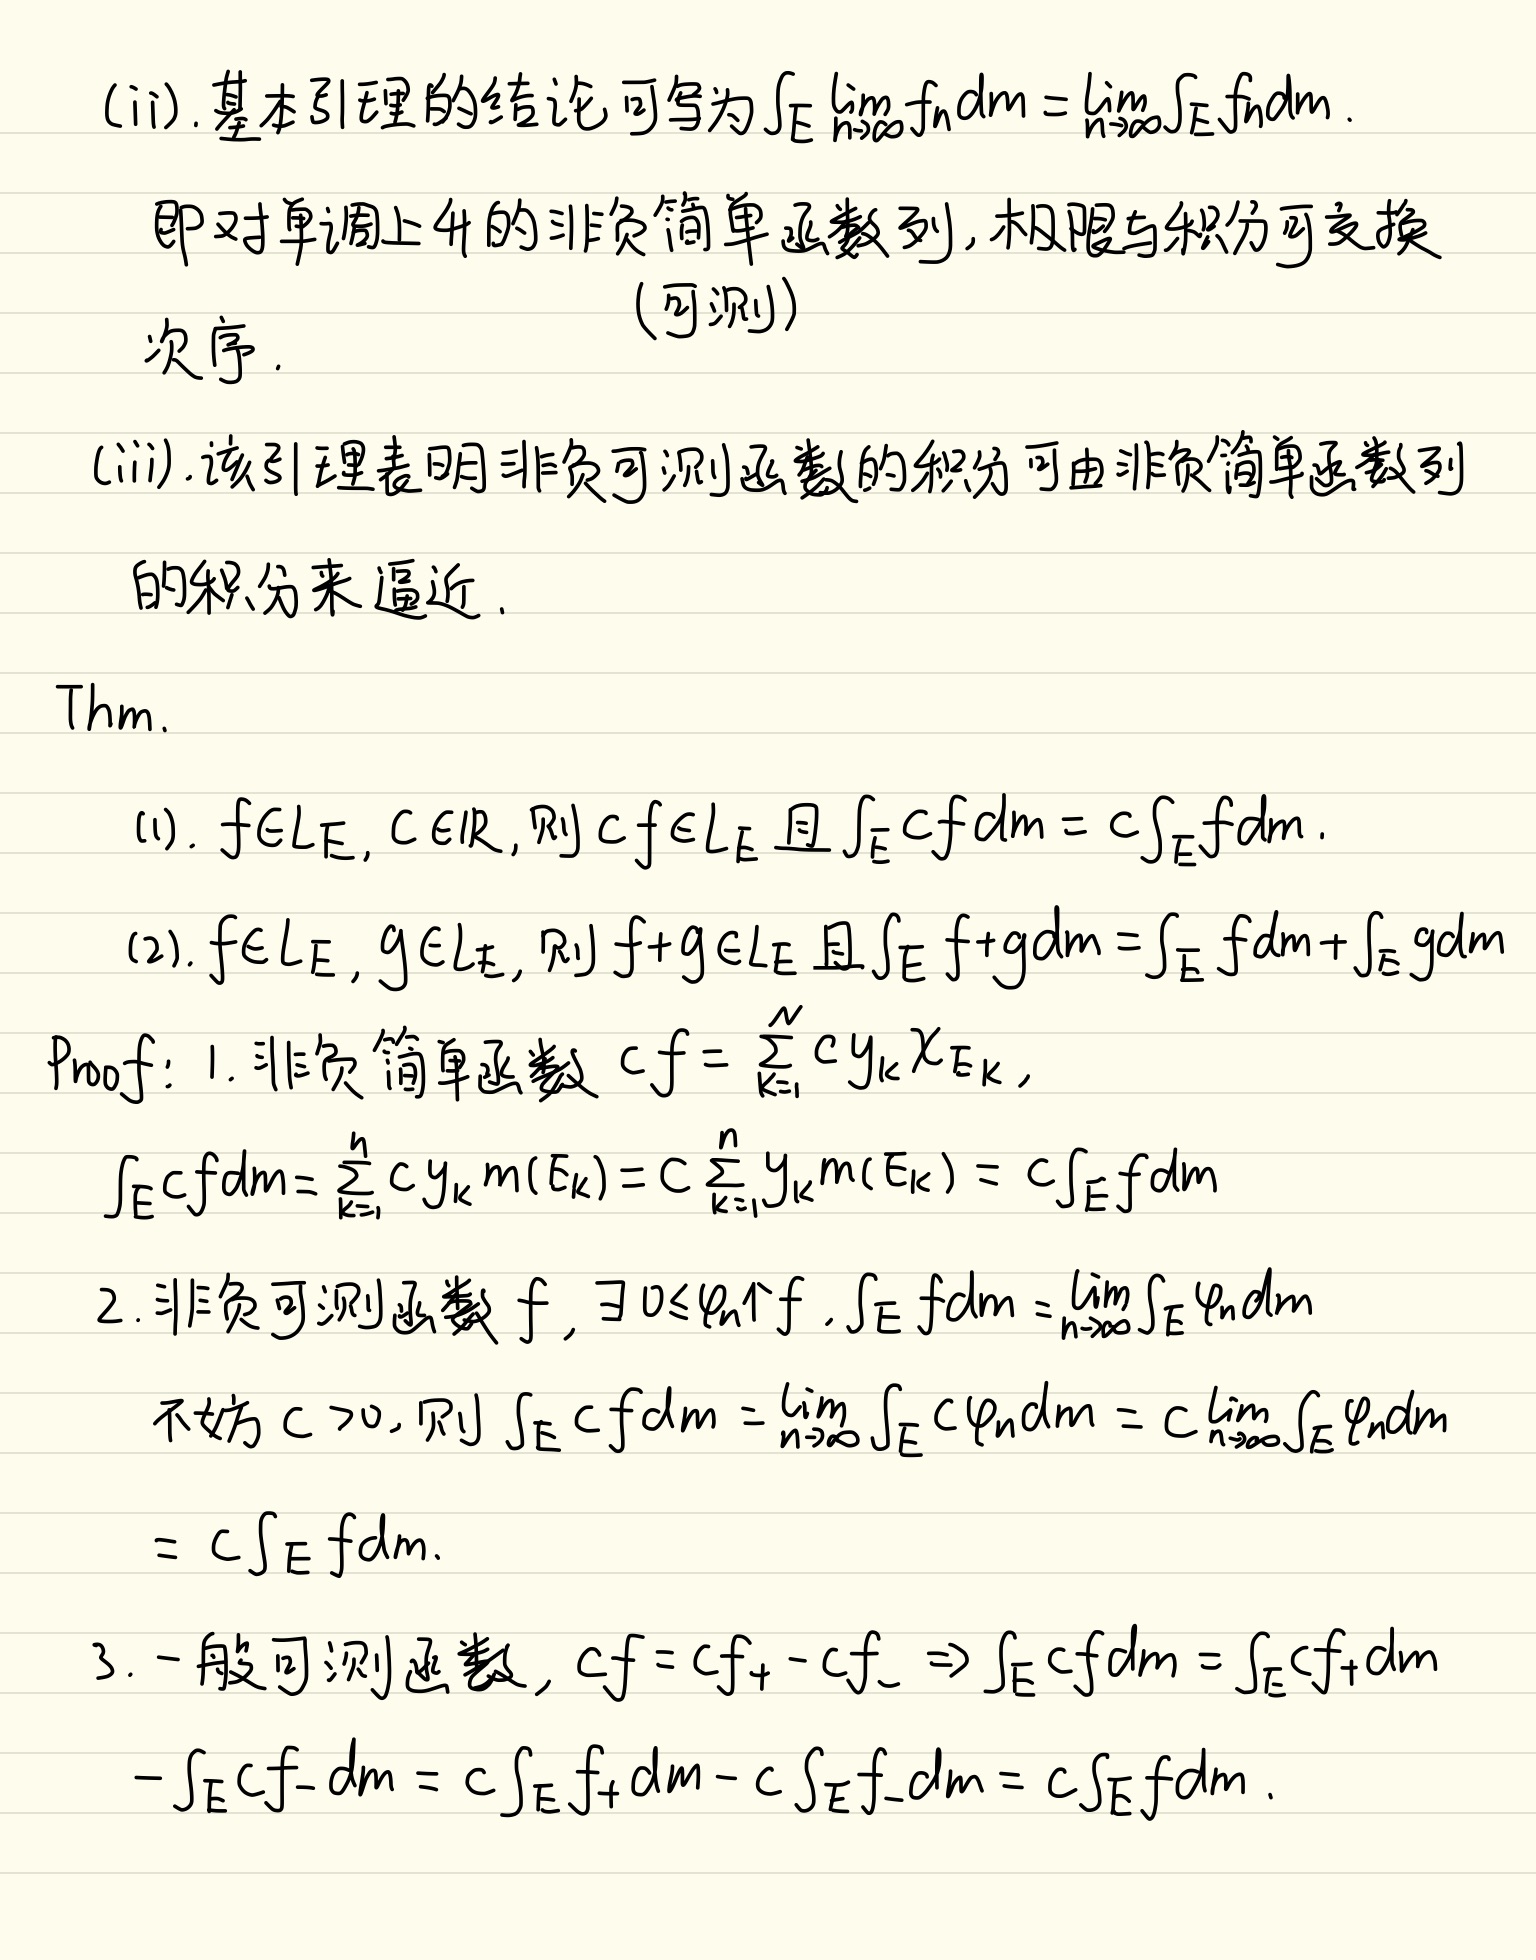 (ii). 基本引理的结论可写为 ∫_E lim_{n→∞} f_n dm = lim_{n→∞} ∫_E f_n dm .
即对单调上升的非负简单函数列, 极限与积分可交换
(可测)
次序 .
(iii). 该引理表明非负可测函数的积分可由非负简单函数列
的积分来逼近 .
Thm.
(1). f∈L_E, C∈ℝ, 则 cf∈L_E 且 ∫_E cf dm = c∫_E f dm .
(2). f∈L_E, g∈L_E, 则 f+g∈L_E 且 ∫_E f+g dm = ∫_E f dm + ∫_E g dm
Proof: 1. 非负简单函数 cf = ∑_{k=1}^{N} c y_k χ_{E_k} ,
∫_E cf dm = ∑_{k=1}^{n} c y_k m(E_k) = C ∑_{k=1}^{n} y_k m(E_k) = c∫_E f dm
2. 非负可测函数 f, ∃ 0≤φ_n↑f . ∫_E f dm = lim_{n→∞} ∫_E φ_n dm
不妨 C >0, 则 ∫_E cf dm = lim_{n→∞} ∫_E cφ_n dm = c lim_{n→∞} ∫_E φ_n dm
= c∫_E f dm.
3. 一般可测函数, cf = cf_+ - cf_- ⇒ ∫_E cf dm = ∫_E cf_+ dm
- ∫_E cf_- dm = c∫_E f_+ dm - c∫_E f_- dm = c∫_E f dm .